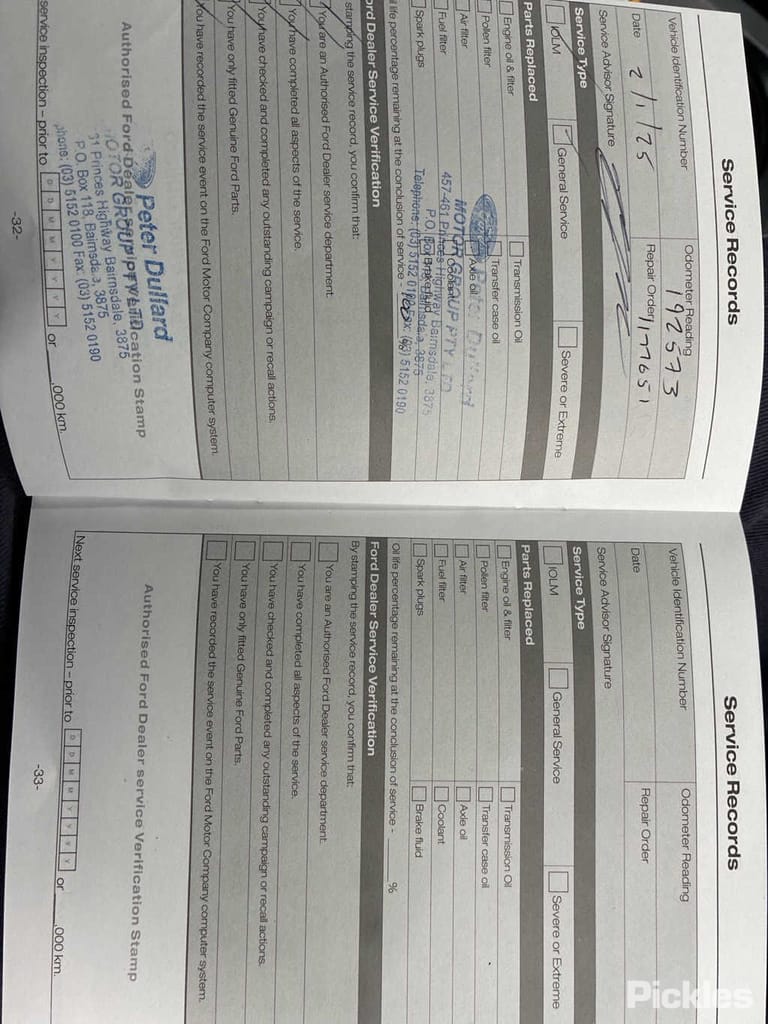 Service Records
Vehicle Identification Number
Odometer Reading
192573
Date 2/1/25
Repair Order 1177651
Service Advisor Signature
Service Type
IOLM
General Service
Severe or Extreme
Parts Replaced
Engine oil & filter
Transmission Oil
Pollen filter
Transfer case oil
Air filter
Axle oil
Fuel filter
Coolant
Spark plugs
Brake fluid
Peter Dullard
MOTOR GROUP PTY LTD
457-461 Princes Highway Bairnsdale, 3875
P.O. Box 118, Bairnsdale, 3875
Telephone: (03) 5152 0100 Fax: (03) 5152 0190
il life percentage remaining at the conclusion of service - 100 %
ord Dealer Service Verification
stamping the service record, you confirm that:
You are an Authorised Ford Dealer service department.
You have completed all aspects of the service.
You have checked and completed any outstanding campaign or recall actions.
You have only fitted Genuine Ford Parts.
You have recorded the service event on the Ford Motor Company computer system.
Peter Dullard
OTOR GROUP PTY LTD
Authorised Ford Dealer service Verification Stamp
31 Princes Highway Bairnsdale, 3875
P.O. Box 118, Bairnsdale, 3875
phone: (03) 5152 0100 Fax: (03) 5152 0190
service inspection – prior to D D M M Y Y Y Y or ,000 km.
-32-
Service Records
Vehicle Identification Number
Odometer Reading
Date
Repair Order
Service Advisor Signature
Service Type
IOLM
General Service
Severe or Extreme
Parts Replaced
Engine oil & filter
Transmission Oil
Pollen filter
Transfer case oil
Air filter
Axle oil
Fuel filter
Coolant
Spark plugs
Brake fluid
Oil life percentage remaining at the conclusion of service - ____ %
Ford Dealer Service Verification
By stamping the service record, you confirm that:
You are an Authorised Ford Dealer service department.
You have completed all aspects of the service.
You have checked and completed any outstanding campaign or recall actions.
You have only fitted Genuine Ford Parts.
You have recorded the service event on the Ford Motor Company computer system.
Authorised Ford Dealer service Verification Stamp
Next service inspection – prior to D D M M Y Y Y Y or ____,000 km.
-33-
Pickles